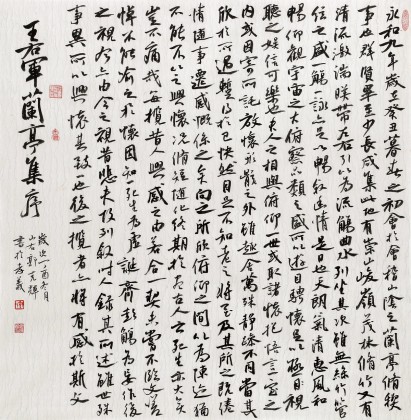 永和九年歲在癸丑暮春之初會於會稽山陰之蘭亭脩禊
事也群賢畢至少長咸集此地有崇山峻嶺茂林脩竹又有
清流激湍映帶左右引以為流觴曲水列坐其次雖無絲竹管
弦之盛一觴一詠亦足以暢敘幽情是日也天朗氣清惠風和
暢仰觀宇宙之大俯察品類之盛所以遊目騁懷足以極視
聽之娛信可樂也夫人之相與俯仰一世或取諸懷抱悟言一室之
內或因寄所託放浪形骸之外雖趣舍萬殊靜躁不同當其
欣於所遇暫得於己快然自足不知老之將至及其所之既倦
情隨事遷感慨係之矣向之所欣俯仰之間以為陳迹猶
不能不以之興懷況脩短隨化終期於盡古人云死生亦大矣
豈不痛哉每攬昔人興感之由若合一契未嘗不臨文嗟
悼不能喻之於懷固知一死生為虛誕齊彭殤為妄作後
之視今亦由今之視昔悲夫故列敘時人錄其所述雖世殊
事異所以興懷其致一也後之攬者亦將有感於斯文
王右軍蘭亭集序
歲次丁酉冬月
山右郭克輝